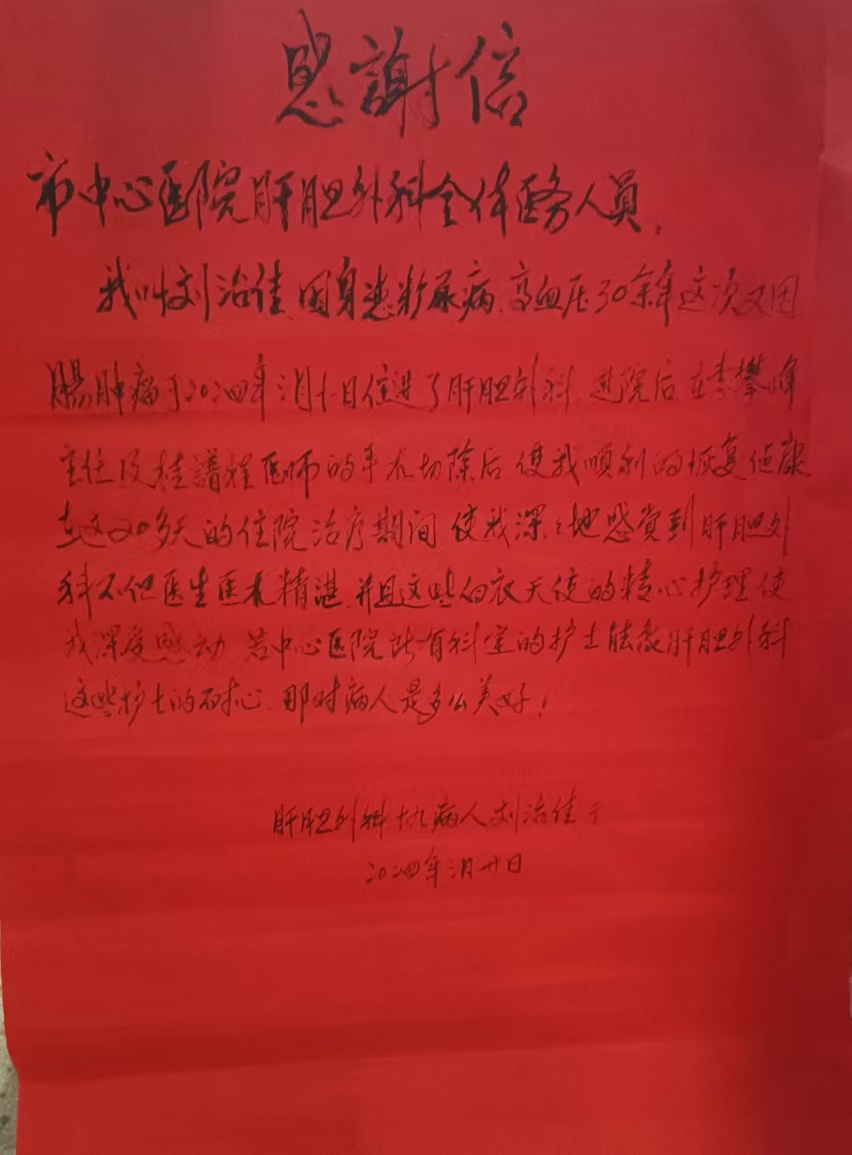 感謝信
市中心医院肝胆外科全体医务人员,
我叫刘治佳、因身患糖尿病、高血压30余年这次又因
腸肿瘤于2024年 月十日住进了肝胆外科 进院后 在李攀峰
主任及桂譜程医师的手术切除后 使我順利的恢复健康
在这20多天的住院治疗期间 使我深々地感覚到肝胆外
科不但医生医术精湛、并且这些白衣天使的精心护理使
我深受感动 若中心医院所有科室的护士能象肝胆外科
这些护士的耐心、那对病人是多么美好!
肝胆外科 病人刘治佳于
2024年 月廿日